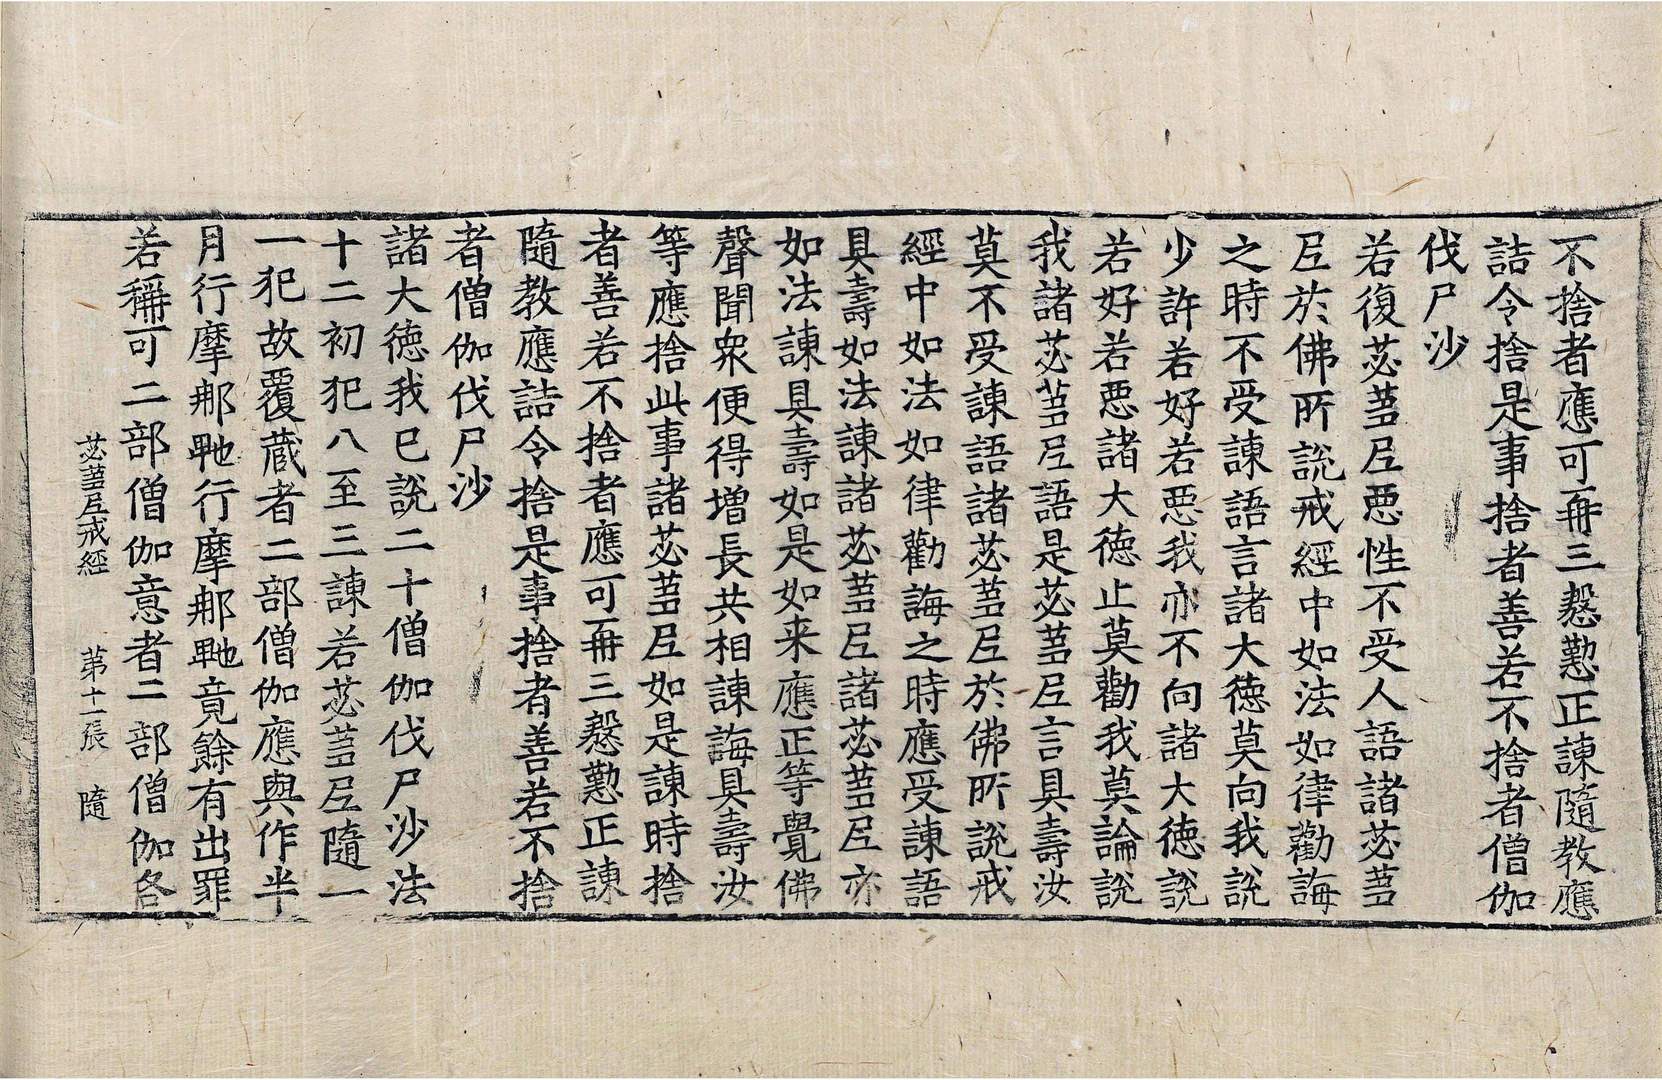 不捨者應可再三慇懃正諫隨教應
詰令捨是事捨者善若不捨者僧伽
伐尸沙
若復苾蒭尼惡性不受人語諸苾蒭
尼於佛所說戒經中如法如律勸誨
之時不受諫語言諸大德莫向我說
少許若好若惡我亦不向諸大德說
若好若惡諸大德止莫勸我莫論說
我諸苾蒭尼語是苾蒭尼言具壽汝
莫不受諫語諸苾蒭尼於佛所說戒
經中如法如律勸誨之時應受諫語
具壽如法諫諸苾蒭尼諸苾蒭尼亦
如法諫具壽如是如来應正等覺佛
聲聞眾便得增長共相諫誨具壽汝
等應捨此事諸苾蒭尼如是諫時捨
者善若不捨者應可再三慇懃正諫
隨教應詰令捨是事捨者善若不捨
者僧伽伐尸沙
諸大德我已說二十僧伽伐尸沙法
十二初犯八至三諫若苾蒭尼隨一
一犯故覆藏者二部僧伽應與作半
月行摩那䩭行摩那䩭竟餘有出罪
若稱可二部僧伽意者二部僧伽各
苾蒭尼戒經 苐十一張 隨